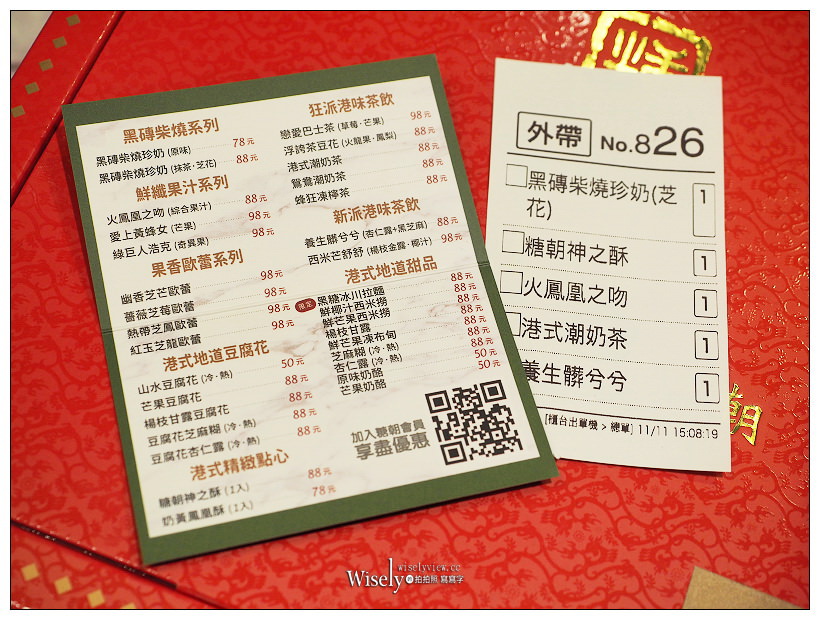 黑磚柴燒系列
黑磚柴燒珍奶 (原味) 78元
黑磚柴燒珍奶 (抹茶·芝花) 88元
鮮纖果汁系列
火鳳凰之吻 (綜合果汁) 88元
愛上黃蜂女 (芒果) 98元
綠巨人浩克 (奇異果) 98元
果香歐蕾系列
幽香芝芒歐蕾 98元
薔薇芝莓歐蕾 98元
熱帶芝鳳歐蕾 98元
紅玉芝龍歐蕾 98元
港式地道豆腐花
山水豆腐花 (冷·熱) 50元
芒果豆腐花 88元
楊枝甘露豆腐花 88元
豆腐花芝麻糊 (冷·熱) 88元
豆腐花杏仁露 (冷·熱) 88元
港式精緻點心
糖朝神之酥 (1入) 88元
奶黃鳳凰酥 (1入) 78元
狂派港味茶飲
戀愛巴士茶 (草莓·芒果) 98元
浮誇茶豆花 (火龍果·鳳梨) 88元
港式潮奶茶 88元
鴛鴦潮奶茶 88元
蜂狂凍檸茶 88元
新派港味茶飲
養生髒兮兮 (杏仁露+黑芝麻) 88元
西米芒舒舒 (楊枝金露·椰汁) 98元
港式地道甜品
限定 黑糖冰川拉麵 88元
鮮椰汁西米撈 88元
鮮芒果西米撈 88元
楊枝甘露 88元
鮮芒果凍布甸 88元
芝麻糊 (冷·熱) 88元
杏仁露 (冷·熱) 88元
原味奶酪 50元
芒果奶酪 50元
加入糖朝會員
享盡優惠
外帶 No.826
黑磚柴燒珍奶(芝花) 1
糖朝神之酥 1
火鳳凰之吻 1
港式潮奶茶 1
養生髒兮兮 1
[櫃台出單機 > 總單] 11/11 15:08:19
朝
wiselyview.cc
Wisely 拍拍照 寫寫字